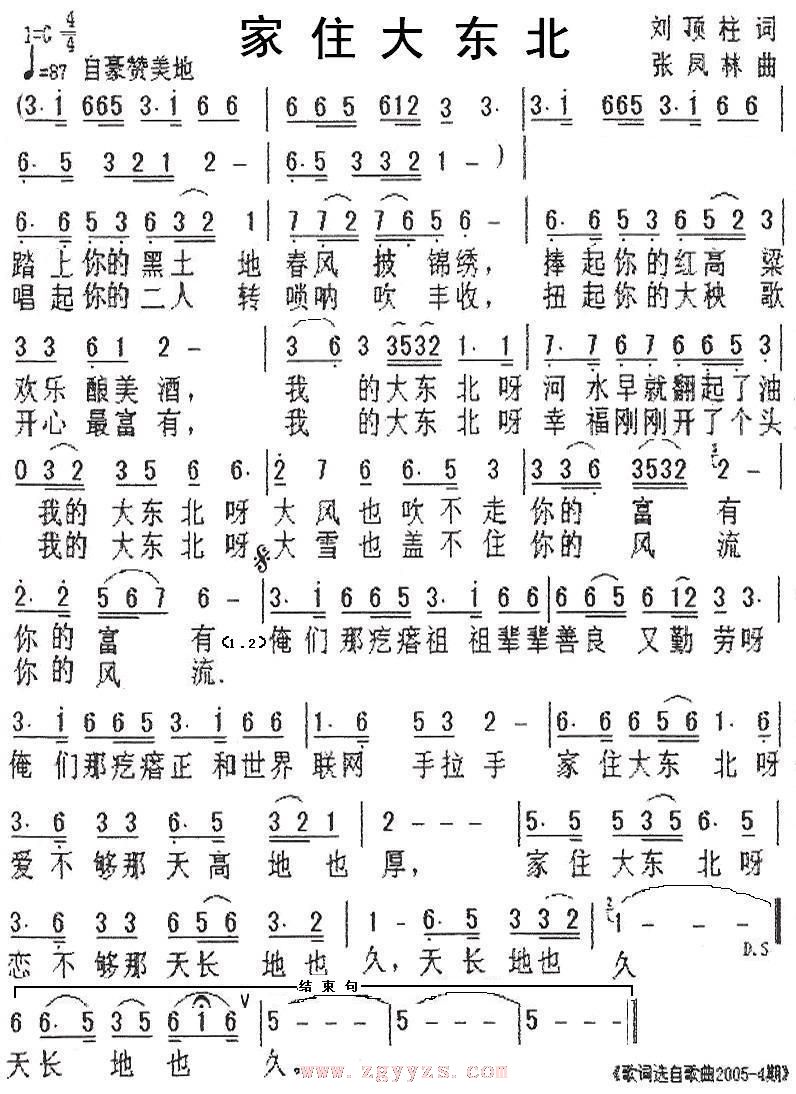 家住大东北
1=C 4/4
刘顶柱 词
♩=87 自豪赞美地
张凤林 曲
(3· i 665 3· i 6 6 | 6 6 5 612 3 3· | 3· i 665 3· i 6 6 |
6· 5 3 2 1 2 – | 6· 5 3 3 2 1 – )
6· 6 5 3 6 3 2 1 | 7 7 2 7 6 5 6 – | 6· 6 5 3 6 5 2 3 |
踏上你的黑土 地 春风 披 锦绣, 捧起你的红高 粱
唱起你的二人 转 唢呐 吹 丰收, 扭起你的大秧 歌
3 3 6 1 2 – | 3 6 3 3532 1· 1 | 7· 7 6 7 6 6 5 3 |
欢乐 酿美酒, 我 的大东北呀 河水早就翻起了油
开心 最富有, 我 的大东北呀 幸福刚刚开了个头
0 3 2 3 5 6 6· | 2 7 6 6· 5 3 | 3 3 6 3532 2 – |
我的 大东北呀 大风也吹不走 你的 富 有
我的 大东北呀 大雪也盖不住 你的 风 流
2· 2 5 6 7 6 – | 3· i 6 6 5 3· i 6 6 | 6 6 5 6 12 3 3· |
你的 富 有 (1.2) 俺们那疙瘩祖 祖辈辈善良 又勤劳呀
你的 风 流.
3· i 6 6 5 3· i 6 6 | 1· 6 5 3 2 – | 6· 6 6 5 6 1· 6 |
俺们那疙瘩正 和世界 联网 手拉手 家住大东 北呀
3· 6 3 3 6· 5 3 2 1 | 2 – – – | 5· 5 5 3 5 6· 5 |
爱不够那天高 地也 厚, 家住大东 北呀
3· 6 3 3 6 5 6 3· 2 | 1 – 6· 5 3 3 2 | 1 – – – |
恋不够那天长 地也 久, 天长地也 久
D.S
结束句
6 6· 5 3 5 6 i 6 ∨ | 5 – – – | 5 – – – | 5 – – – |
天长 地 也 久。
www.zgyyzs.com
《歌词选自歌曲2005-4期》